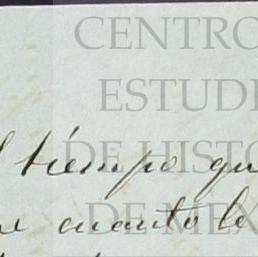 CENTRO
ESTUDI
DE HISTO
DE MÉX
tiempo qu
cuanto le